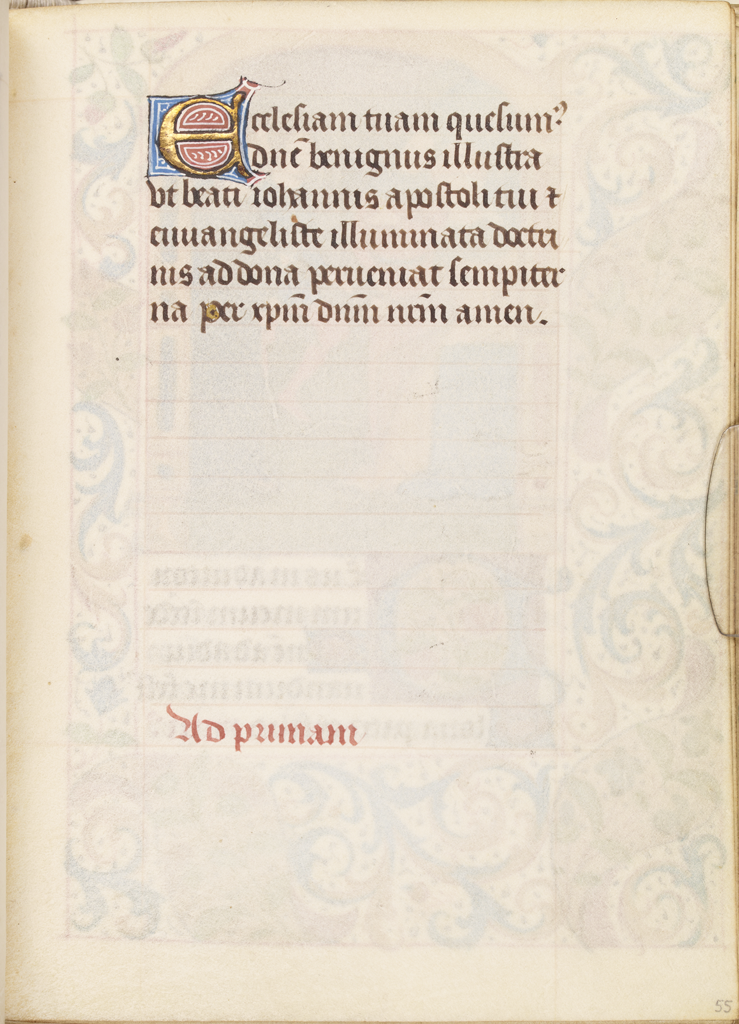 Ecclesiam tuam quesumꝰ
dn̄e benignus illustra
vt beati iohannis apostoli tui ⁊
euuangeliste illuminata doctri
nis ad dona perueniat sempiter
na per xp̄m dn̄m nr̄m amen.
Ad primam
55